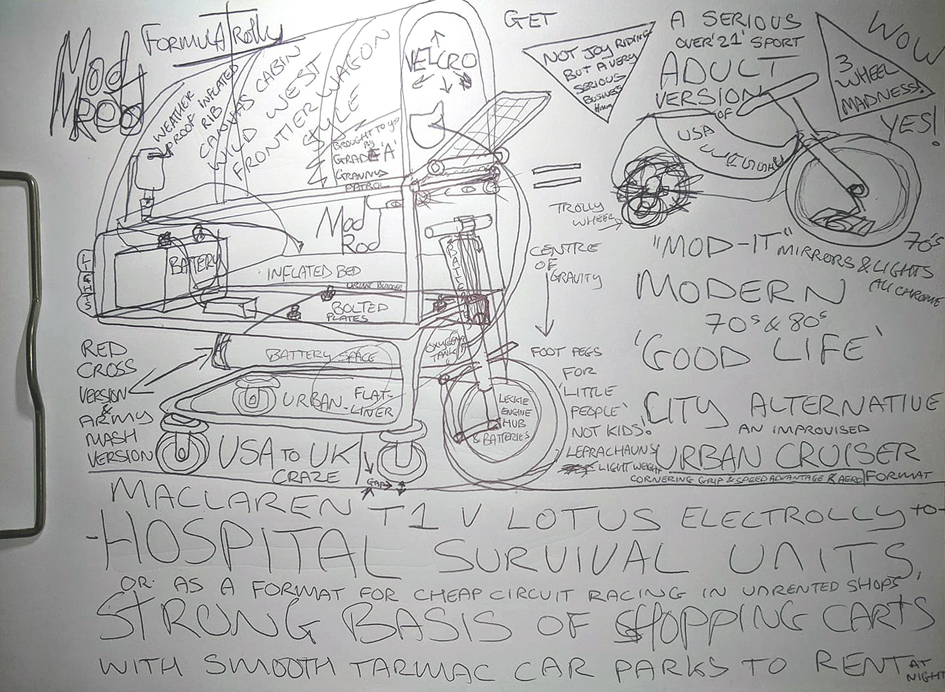 Mod
Rod
FORMULA Trolly
WEATHER
PROOF INFLATED
RIB
CANVAS CABIN
WILD WEST
FRONTIER WAGON
STYLE
BROUGHT TO YOU
BY
GRADE 'A'
GRANNIES
PATROL
VELCRO
Mod
Rod
BATTERY
LIGHTS
INFLATED BED
BOLTED
PLATES
BATTERY SPACE
OXYGEN
TANK
URBAN-FLAT-
LINER
LECKIE
ENGINE
HUB
& BATTERIES
RED
CROSS
VERSION
&
ARMY
MASH
VERSION
USA TO UK
CRAZE
GAP
GET
NOT JOY RIDING
BUT A VERY
SERIOUS
BUSINESS
=
A SERIOUS
OVER '21' SPORT
ADULT
VERSION
OF
USA
3
WHEEL
MADNESS!
WOW
YES!
TROLLY
WHEELS
70'S
CENTRE
OF
GRAVITY
FOOT PEGS
FOR
'LITTLE
PEOPLE'
NOT KIDS!
LEPRACHAUNS
LIGHT WEIGHT
"MOD-IT" MIRRORS & LIGHTS
ALL CHROME
MODERN
70s & 80s
'GOOD LIFE'
CITY ALTERNATIVE
AN IMPROVISED
URBAN CRUISER
CORNERING GRIP & SPEED ADVANTAGE & AERO FORMAT
MACLAREN T1 V LOTUS ELECTROLLY TO-
-HOSPITAL SURVIVAL UNITS,
OR AS A FORMAT FOR CHEAP CIRCUIT RACING IN UNRENTED SHOPS
STRONG BASIS OF SHOPPING CARTS
WITH SMOOTH TARMAC CAR PARKS TO RENT AT NIGHT